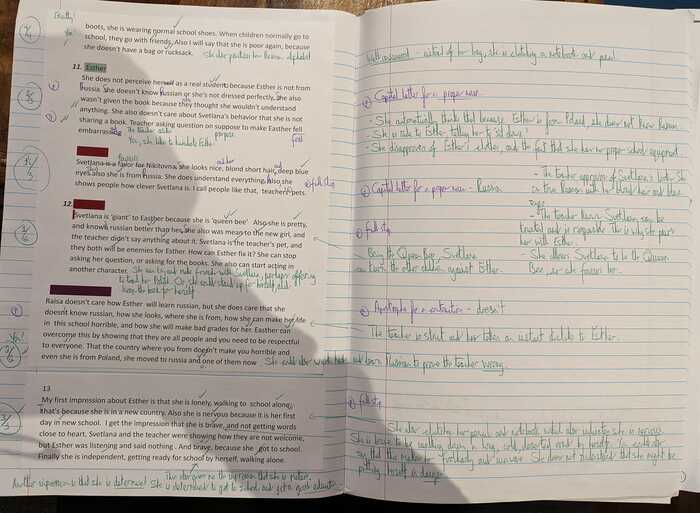 Really!
boots, she is wearing normal school shoes. When children normally go
school, they go with friends. Also I will say that she is poor again, because
she doesn't have a bag or rucksack.
11. Esther
She does not perceive herself as a real student because Esther is not from
Russia. She doesn't know Russian or she's not dressed perfectly. She also
wasn't given the book because they thought she wouldn't understand
anything. She also doesn't care about Svetlana's behavior that she is not
sharing a book. Teacher asking question on suppose to make Easther fell
embarrassing The teacher asks
purpose
feel
Yes, she like to humiliate Esther
Svetlana is a favor for Nikitovna. She looks nice, blond short hair, deep blue
eyes also she is from Russia. She does understand everything. Also she
shows people how clever Svetlana is. I call people like that, teachers pets.
full stop
12.
Svetlana is 'giant' to Easther because she is 'queen bee'. Also she is pretty,
and known russian better than her, she also was mean to the new girl, and
the teacher didn't say anything about it. Svetlana is the teacher's pet, and
they both will be enemies for Esther. How can Esther fix it? She can stop
asking her question, or asking for the books. She also can start acting in
another character. She can try and make friends with Svetlana, perhaps offering
to lend her Polish. Or she could stand up for herself, and
keep the book for herself.
Raisa doesn't care how Esther will learn russian, but she does care that she
doesnt know russian, how she looks, where she is from, how she can make her life
in this school horrible, and how she will make bad grades for her. Easther can
overcome this by showing that they are all people and you need to be respectful
to everyone. That the country where you from doesn't make you horrible and
even she is from Poland, she moved to russia and one of them now She could also work hard and learn Russian to prove the teacher wrong.
13.
My first impression about Esther is that she is lonely, walking to school alone,
that's because she is in a new country. Also she is nervous because it is her first
day in new school. I get the impression that she is brave, and not getting words
close to heart. Svetlana and the teacher were showing how they are not welcome,
but Esther was listening and said nothing. And brave, because she got to school.
Finally she is independent, getting ready for school by herself, walking alone.
This also gives me the impression that she is mature.
Another impression is that she is determined. She is determined to get to school and get a good education.
Well answered - instead of her bag, she is clutching a notebook and pencil.
Capital letter for a proper noun.
- She automatically thinks that because Esther is from Poland, she does not know Russian.
- She is rude to Esther, telling her to 'sit down'!
- She disapproves of Esther's clothes, and the fact that she has no proper school equipment.
- The teacher approves of Svetlana's looks. She
Capital letter for a proper noun - Russia
full stop
her with Esther.
Being the Queen Bee, Svetlana
can turn the other children against Esther.
- She allows Svetlana to be the Queen
Bee, as she favours her.
Apostrophe for a contraction - doesn't
The teacher is strict and has taken an instant dislike to Esther.
full stop
She also clutches her pencil and notebook which also indicates she is nervous.
She is brave to be walking down a long, cold, deserted road by herself. You could also
say that this makes her foolhardy and unaware. She does not understand that she might be
putting herself in danger.